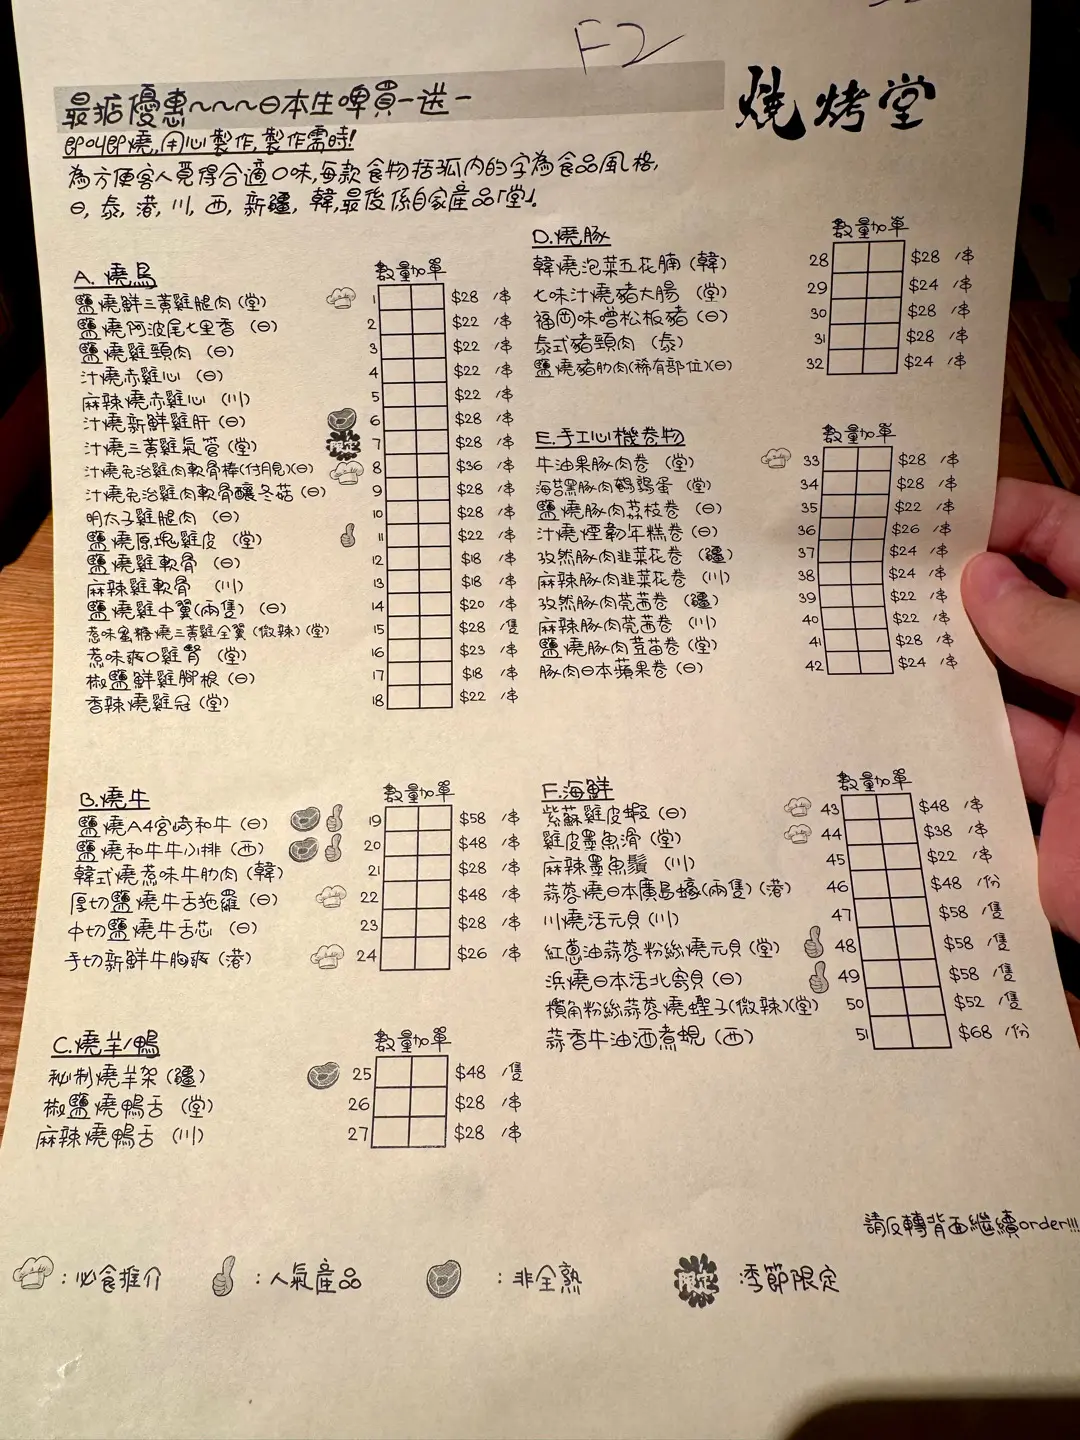 F2
最掂優惠~~~日本生啤買一送一
燒烤堂
即叫即燒,用心製作,製作需時!
為方便客人覓得合適口味,每款食物括弧內的字為食品風格,
日,泰,港,川,西,新疆,韓,最後係自家產品「堂」。
A.燒鳥 數量 加單
鹽燒鮮三黃雞腿肉(堂) 1 $28 /串
鹽燒阿波尾七里香(日) 2 $22 /串
鹽燒雞頸肉(日) 3 $22 /串
汁燒赤雞心(日) 4 $22 /串
麻辣燒赤雞心(川) 5 $22 /串
汁燒新鮮雞肝(日) 6 $28 /串
汁燒三黃雞氣管(堂) 限定 7 $28 /串
汁燒免治雞肉軟骨棒(付月見)(日) 8 $36 /串
汁燒免治雞肉軟骨釀冬菇(日) 9 $28 /串
明太子雞腿肉(日) 10 $28 /串
鹽燒原塊雞皮(堂) 11 $22 /串
鹽燒雞軟骨(日) 12 $18 /串
麻辣雞軟骨(川) 13 $18 /串
鹽燒雞中翼(兩隻)(日) 14 $20 /串
惹味蜜糖燒三黃雞全翼(微辣)(堂) 15 $28 /隻
惹味爽口雞腎(堂) 16 $23 /串
椒鹽鮮雞腳根(日) 17 $18 /串
香辣燒雞冠(堂) 18 $22 /串
B.燒牛 數量 加單
鹽燒A4宮崎和牛(日) 19 $58 /串
鹽燒和牛牛小排(西) 20 $48 /串
韓式燒惹味牛肋肉(韓) 21 $28 /串
厚切鹽燒牛舌拖羅(日) 22 $48 /串
中切鹽燒牛舌芯(日) 23 $28 /串
手切新鮮牛胸爽(港) 24 $26 /串
C.燒羊/鴨 數量 加單
秘制燒羊架(疆) 25 $48 /隻
椒鹽燒鴨舌(堂) 26 $28 /串
麻辣燒鴨舌(川) 27 $28 /串
D.燒豚 數量 加單
韓燒泡菜五花腩(韓) 28 $28 /串
七味汁燒豬大腸(堂) 29 $24 /串
福岡味噌松板豬(日) 30 $28 /串
泰式豬頸肉(泰) 31 $28 /串
鹽燒豬肋肉(稀有部位)(日) 32 $24 /串
E.手工心機卷物 數量 加單
牛油果豚肉卷(堂) 33 $28 /串
海苔黑豚肉鵪鶉蛋(堂) 34 $28 /串
鹽燒豚肉荔枝卷(日) 35 $22 /串
汁燒煙韌年糕卷(日) 36 $26 /串
孜然豚肉韭菜花卷(疆) 37 $24 /串
麻辣豚肉韭菜花卷(川) 38 $24 /串
孜然豚肉芫茜卷(疆) 39 $22 /串
麻辣豚肉芫茜卷(川) 40 $22 /串
鹽燒豚肉荳苗卷(堂) 41 $28 /串
豚肉日本蘋果卷(日) 42 $24 /串
F.海鮮 數量 加單
紫蘇雞皮蝦(日) 43 $48 /串
雞皮墨魚滑(堂) 44 $38 /串
麻辣墨魚鬚(川) 45 $22 /串
蒜蓉燒日本廣島蠔(兩隻)(港) 46 $48 /份
川燒活元貝(川) 47 $58 /隻
紅蔥油蒜蓉粉絲燒元貝(堂) 48 $58 /隻
浜燒日本活北寄貝(日) 49 $58 /隻
欖角粉絲蒜蓉燒蟶子(微辣)(堂) 50 $52 /隻
蒜香牛油酒煮蜆(西) 51 $68 /份
請反轉背面繼續order!!!
:必食推介 :人氣產品 :非全熟 限定 季節限定